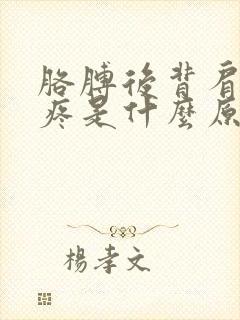 胳膊後背肩
疼是什麼原
楊孝文